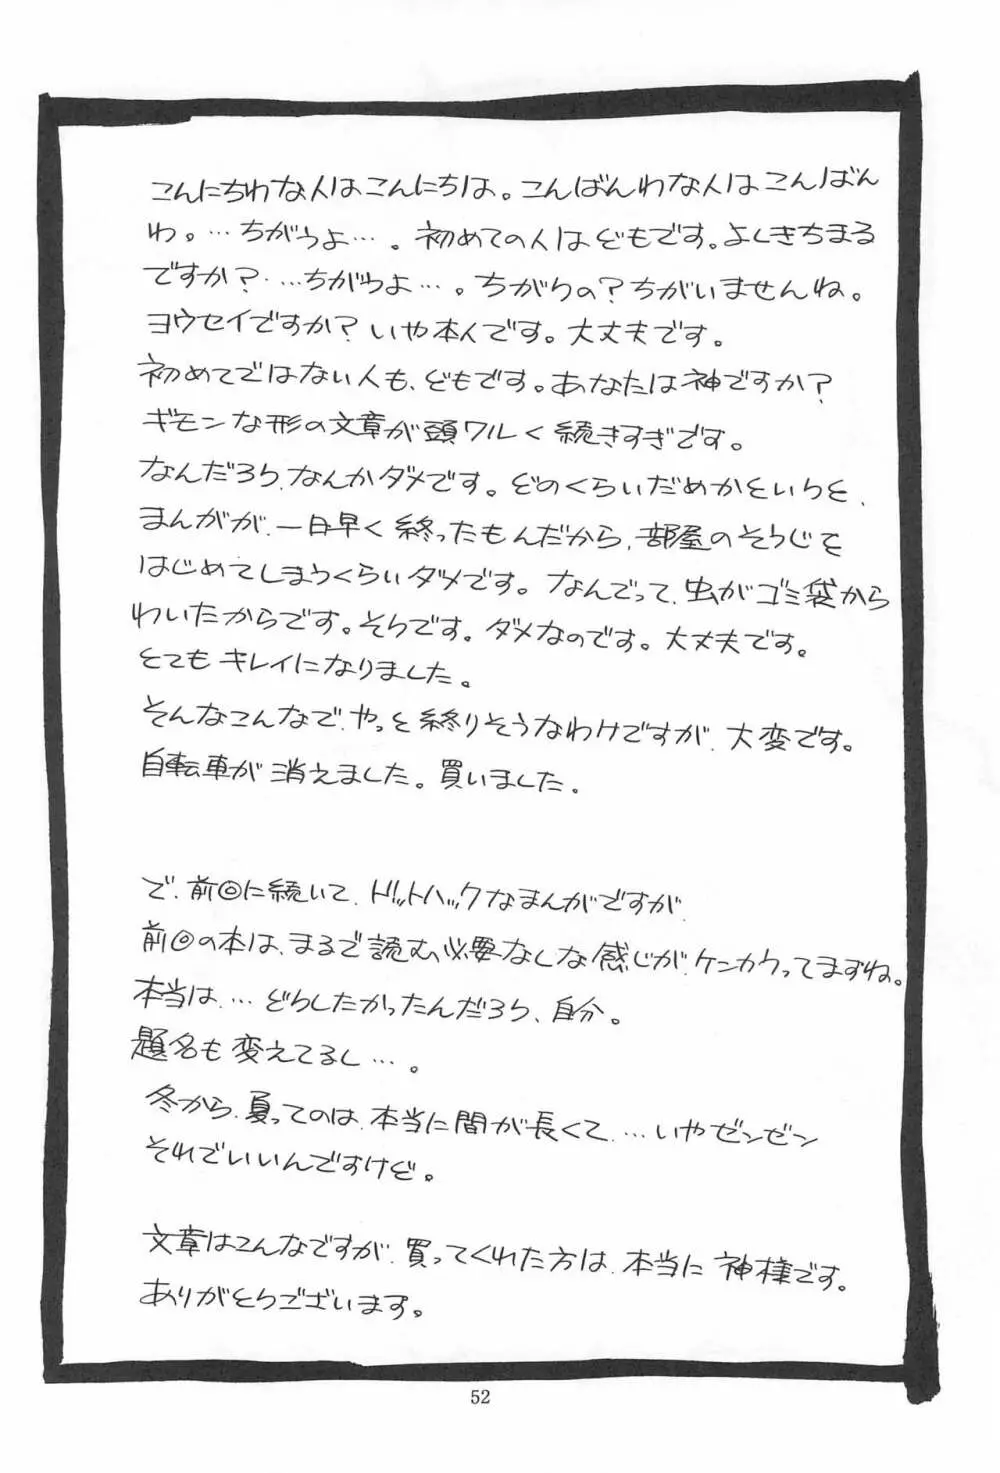 こんにちわな人はこんにちは。こんばんわな人はこんばん
わ。…ちがうよ…。初めての人はどもです。よしきちまる
ですか？…ちがうよ…。ちがうの？ちがいませんね。
ヨウセイですか？いや本人です。大丈夫です。
初めてではない人も、どもです。あなたは神ですか？
ギモンな形の文章が頭ワルく続きすぎです。
なんだろう、なんかダメです。どのくらいだめかというと、
まんがが、一日早く終ったもんだから、部屋のそうじを
はじめてしまうくらいダメです。なんでって、虫がゴミ袋から
わいたからです。そうです。ダメなのです。大丈夫です。
とてもキレイになりました。
そんなこんなで、やっと終りそうなわけですが、大変です。
自転車が消えました。買いました。
で、前回に続いて、ドットハックなまんがですが、
前回の本は、まるで読む必要なしな感じが、ケンカウってますね。
本当は、…どうしたかったんだろう、自分。
題名も変えてるし…。
冬から、夏ってのは、本当に間が長くて、…いやゼンゼン
それでいいんですけど。
文章はこんなですが、買ってくれた方は、本当に神様です。
ありがとうございます。
52